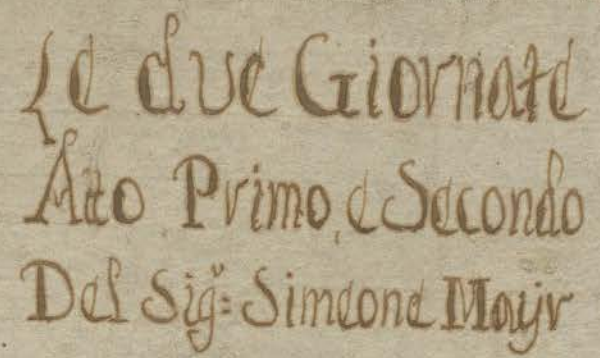 Le due Giornate
Atto Primo, e Secondo
Del Sigʳ: Simeone Mayr